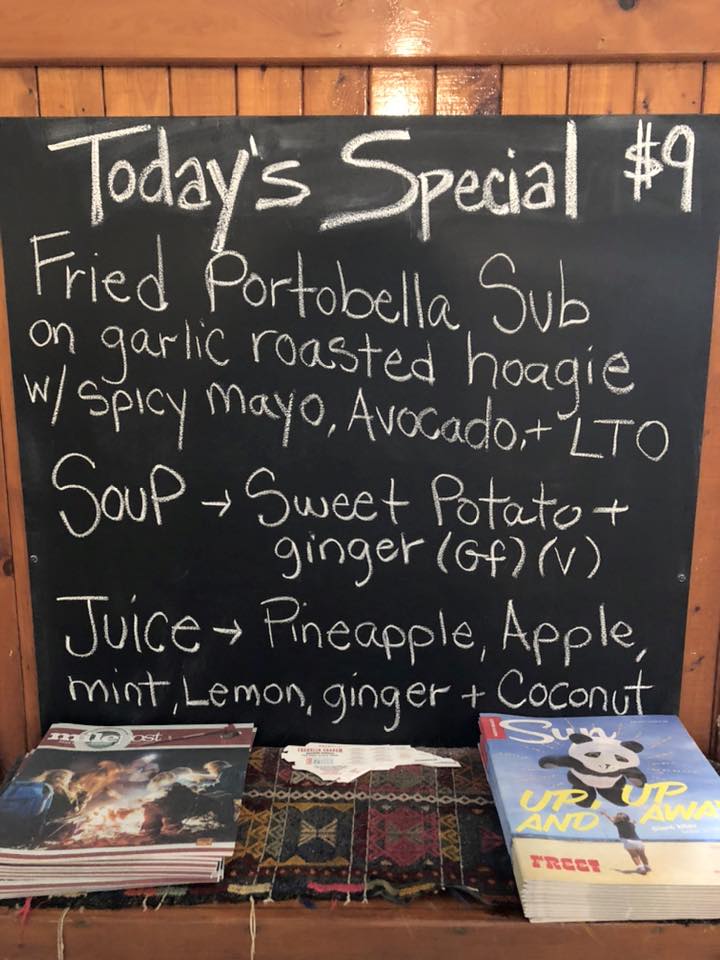 Today's Special $9
Fried Portobella Sub
on garlic roasted hoagie
w/ spicy mayo, Avocado, + LTO
Soup → Sweet Potato +
ginger (Gf) (V)
Juice → Pineapple, Apple,
mint, Lemon, ginger + Coconut
Sun
UP, UP
AND AWAY
FREE!